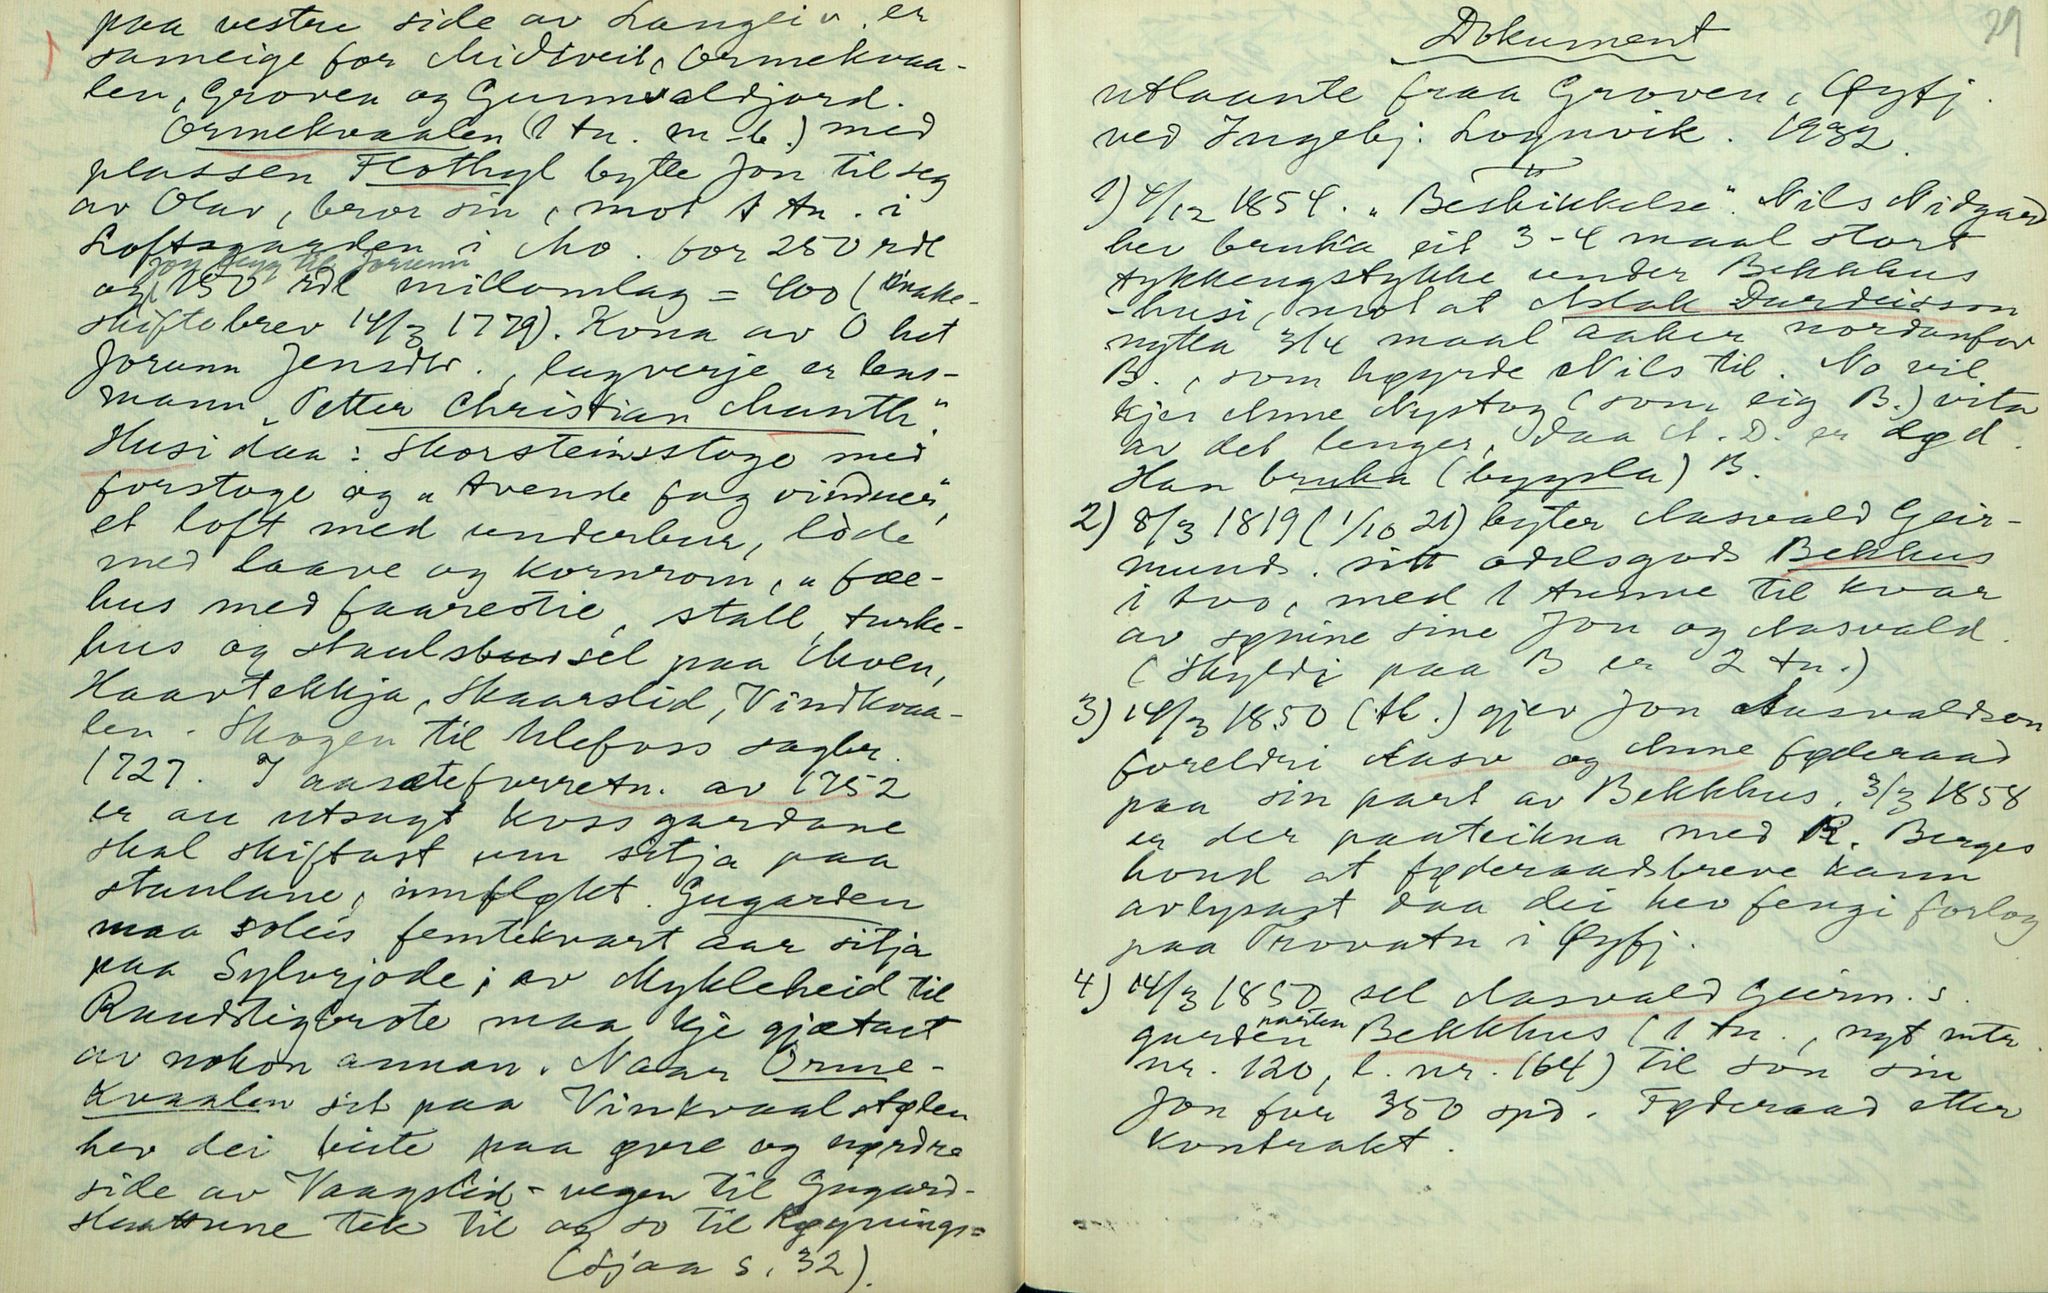 paa vestre side av Langeiv. er
sameige for Midtveit, Ormekvaa-
len, Groven og Gunnvaldjord.
Ormekvaalen (1 tn. m-b.) med
plassen Flothyl bytte Jon til seg
av Olav, bror sin, mot 1 tn. i
Loftsgarden i Mo. for 250 rdl
Jon legg til Jorunn
og 150 rdl millomlag = 400 (Make-
skiftebrev 14/3 1779). Kona av O het
Jorunn Jensdtr., lagverje er lens-
mann "Petter Christian Munth".
Husi daa: Skorsteinsstoge med
forstoge og "tvende fag vinduer",
et loft med underbur, löde
med laave og kornrom, "fæ-
hus med faarestie, stall, turke-
hus og staulssel paa Moen,
Haavtekkja, Skaarslid, Vindkvaa-
len. Skogen til Ulefoss sagbr.
1727. I aasæteforretn. av 1752
er au utsagt koss gardane
skal skiftast um sitja paa
staulane, innfløkt. Gugarden
maa soleis femtekvart aar sitja
paa Sylvrjode; av Mykleheid til
Raudstigbrote maa kje gjætast
av nokon annan. Naar Orme-
kvaalen sit paa Vinkvaalstølen
hev dei beite paa øvre og nørdre
side av Vaagslid-vegen til Gugard-
skaattune tek til og so til Køyrings=
(Sjaa s. 32).
29
Dokument
utlaante fraa Groven, Øyfj.
ved Ingebj. Lognvik. 1932.
1) 4/12 1854. "Beskikkelse". Nils Nidgard
hev bruka eit 3-4 maal stort
tykkengstykke under Bekkhus
-husi, mot at Aslak Durdeisson
nytta 3/4 maal aaker nordanfor
B., som høyrde Nils til. No vil
kje Anne Nystog (som eig B.) vita
av det lenger, daa A. D. er død.
Han bruka (bygsla) B.
2) 8/3 1819 (1/10 21) byter Aasvald Geir-
munds. sitt odelsgods Bekkhus
i tvo, med 1 tunne til kvar
av sønine sine Jon og Aasvald.
(Skyldi paa B er 2 tn.)
3) 14/3 1850 (tl.) gjev Jon Aasvaldson
foreldri Aasv og Anne føderaad
paa sin part av Bekkhus. 3/3 1858
er der paateikna med R. Berges
hond at føderaadsbreve kann
avlysast daa dei hev fengi forlog
paa Trovatn i Øyfj.
4) 14/3 1850 sel Aasvald Geirm. s.
parten
garden Bekkhus (1 tn., nyt mtr.
nr. 120, l. nr. 164) til son sin
Jon for 350 spd. Føderaad etter
kontrakt.